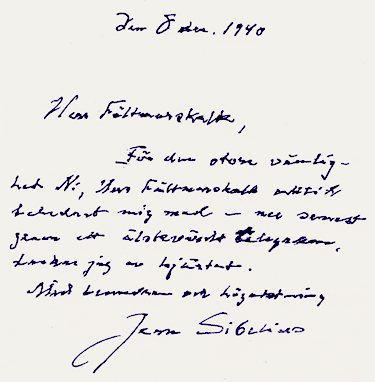 Den 8 dec. 1940
Herr Fältmarskalk,
För den stora vänlig-
het Ni, Herr Fältmarskalk
mig med – nu senast
genom ett älskvärdt telegram,
tackar jag av hjärtat.
Med beundran och högaktning
Jean Sibelius